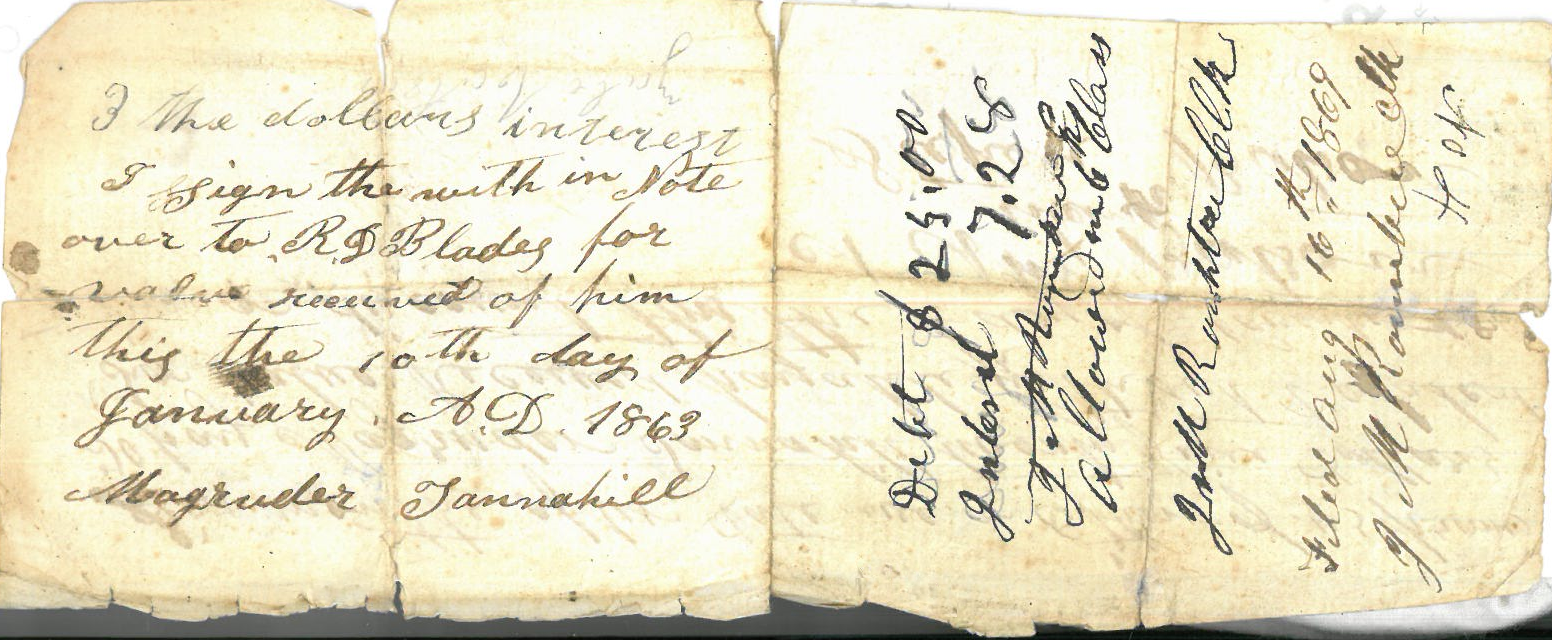 3 the dollars interest
I sign the with in Note
over to R D Blades for
value received of him
this the 10th day of
January A.D. 1863
Magruder Tannahill
Debt $ 25.00
Interest 7.25
J M
allowed in 6th Class
Jno M Rountree Clk
Filed aug 16th 1869
J M Rountree clk